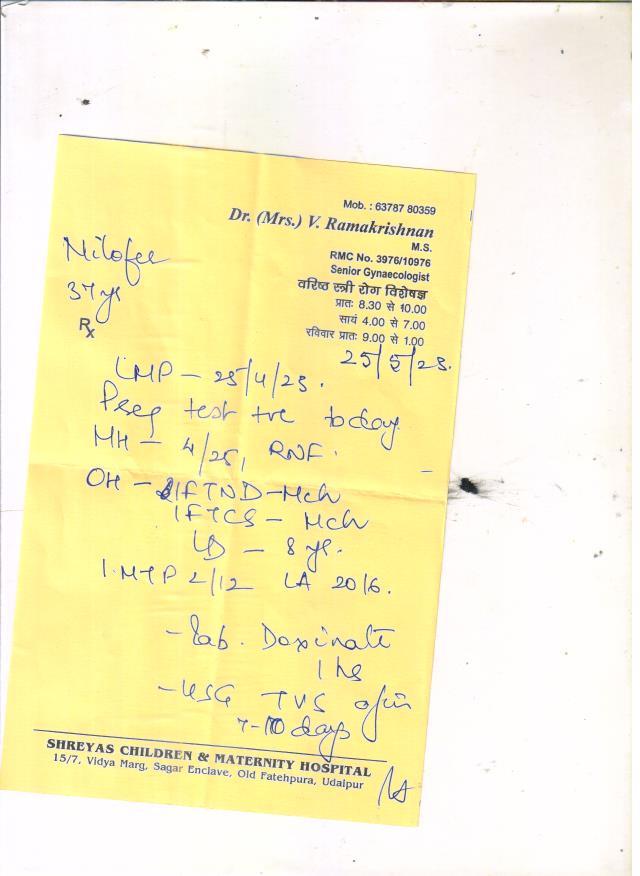 Mob. : 63787 80359
Dr. (Mrs.) V. Ramakrishnan
M.S.
RMC No. 3976/10976
Senior Gynaecologist
वरिष्ठ स्त्री रोग विशेषज्ञ
प्रातः 8.30 से 10.00
सायं 4.00 से 7.00
रविवार प्रातः 9.00 से 1.00
37 yr
Rx
25/5/23.
LMP - 25/4/23.
Preg test +ve today
MH - 4/25, RNF.
OH - 1FTND - Mch
1FTCS - Mch
LD - 8 yr.
1 MTP 2/12 LA 2016.
- Tab. Doxinate
1 hs
- USG TVS after
7-10 days
SHREYAS CHILDREN & MATERNITY HOSPITAL
15/7, Vidya Marg, Sagar Enclave, Old Fatehpura, Udaipur